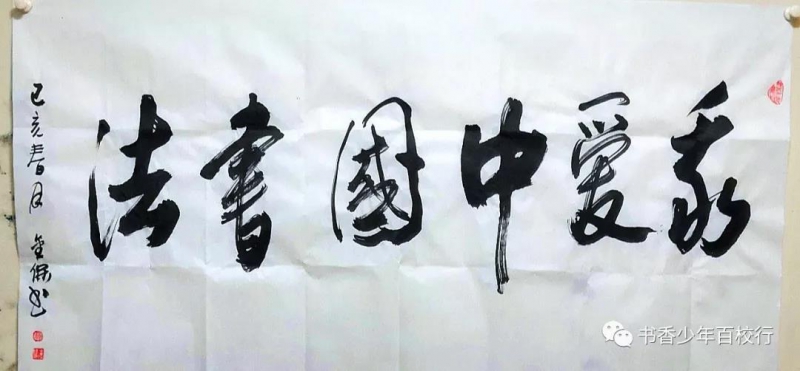 我爱中國書法
己亥春月
书香少年百校行